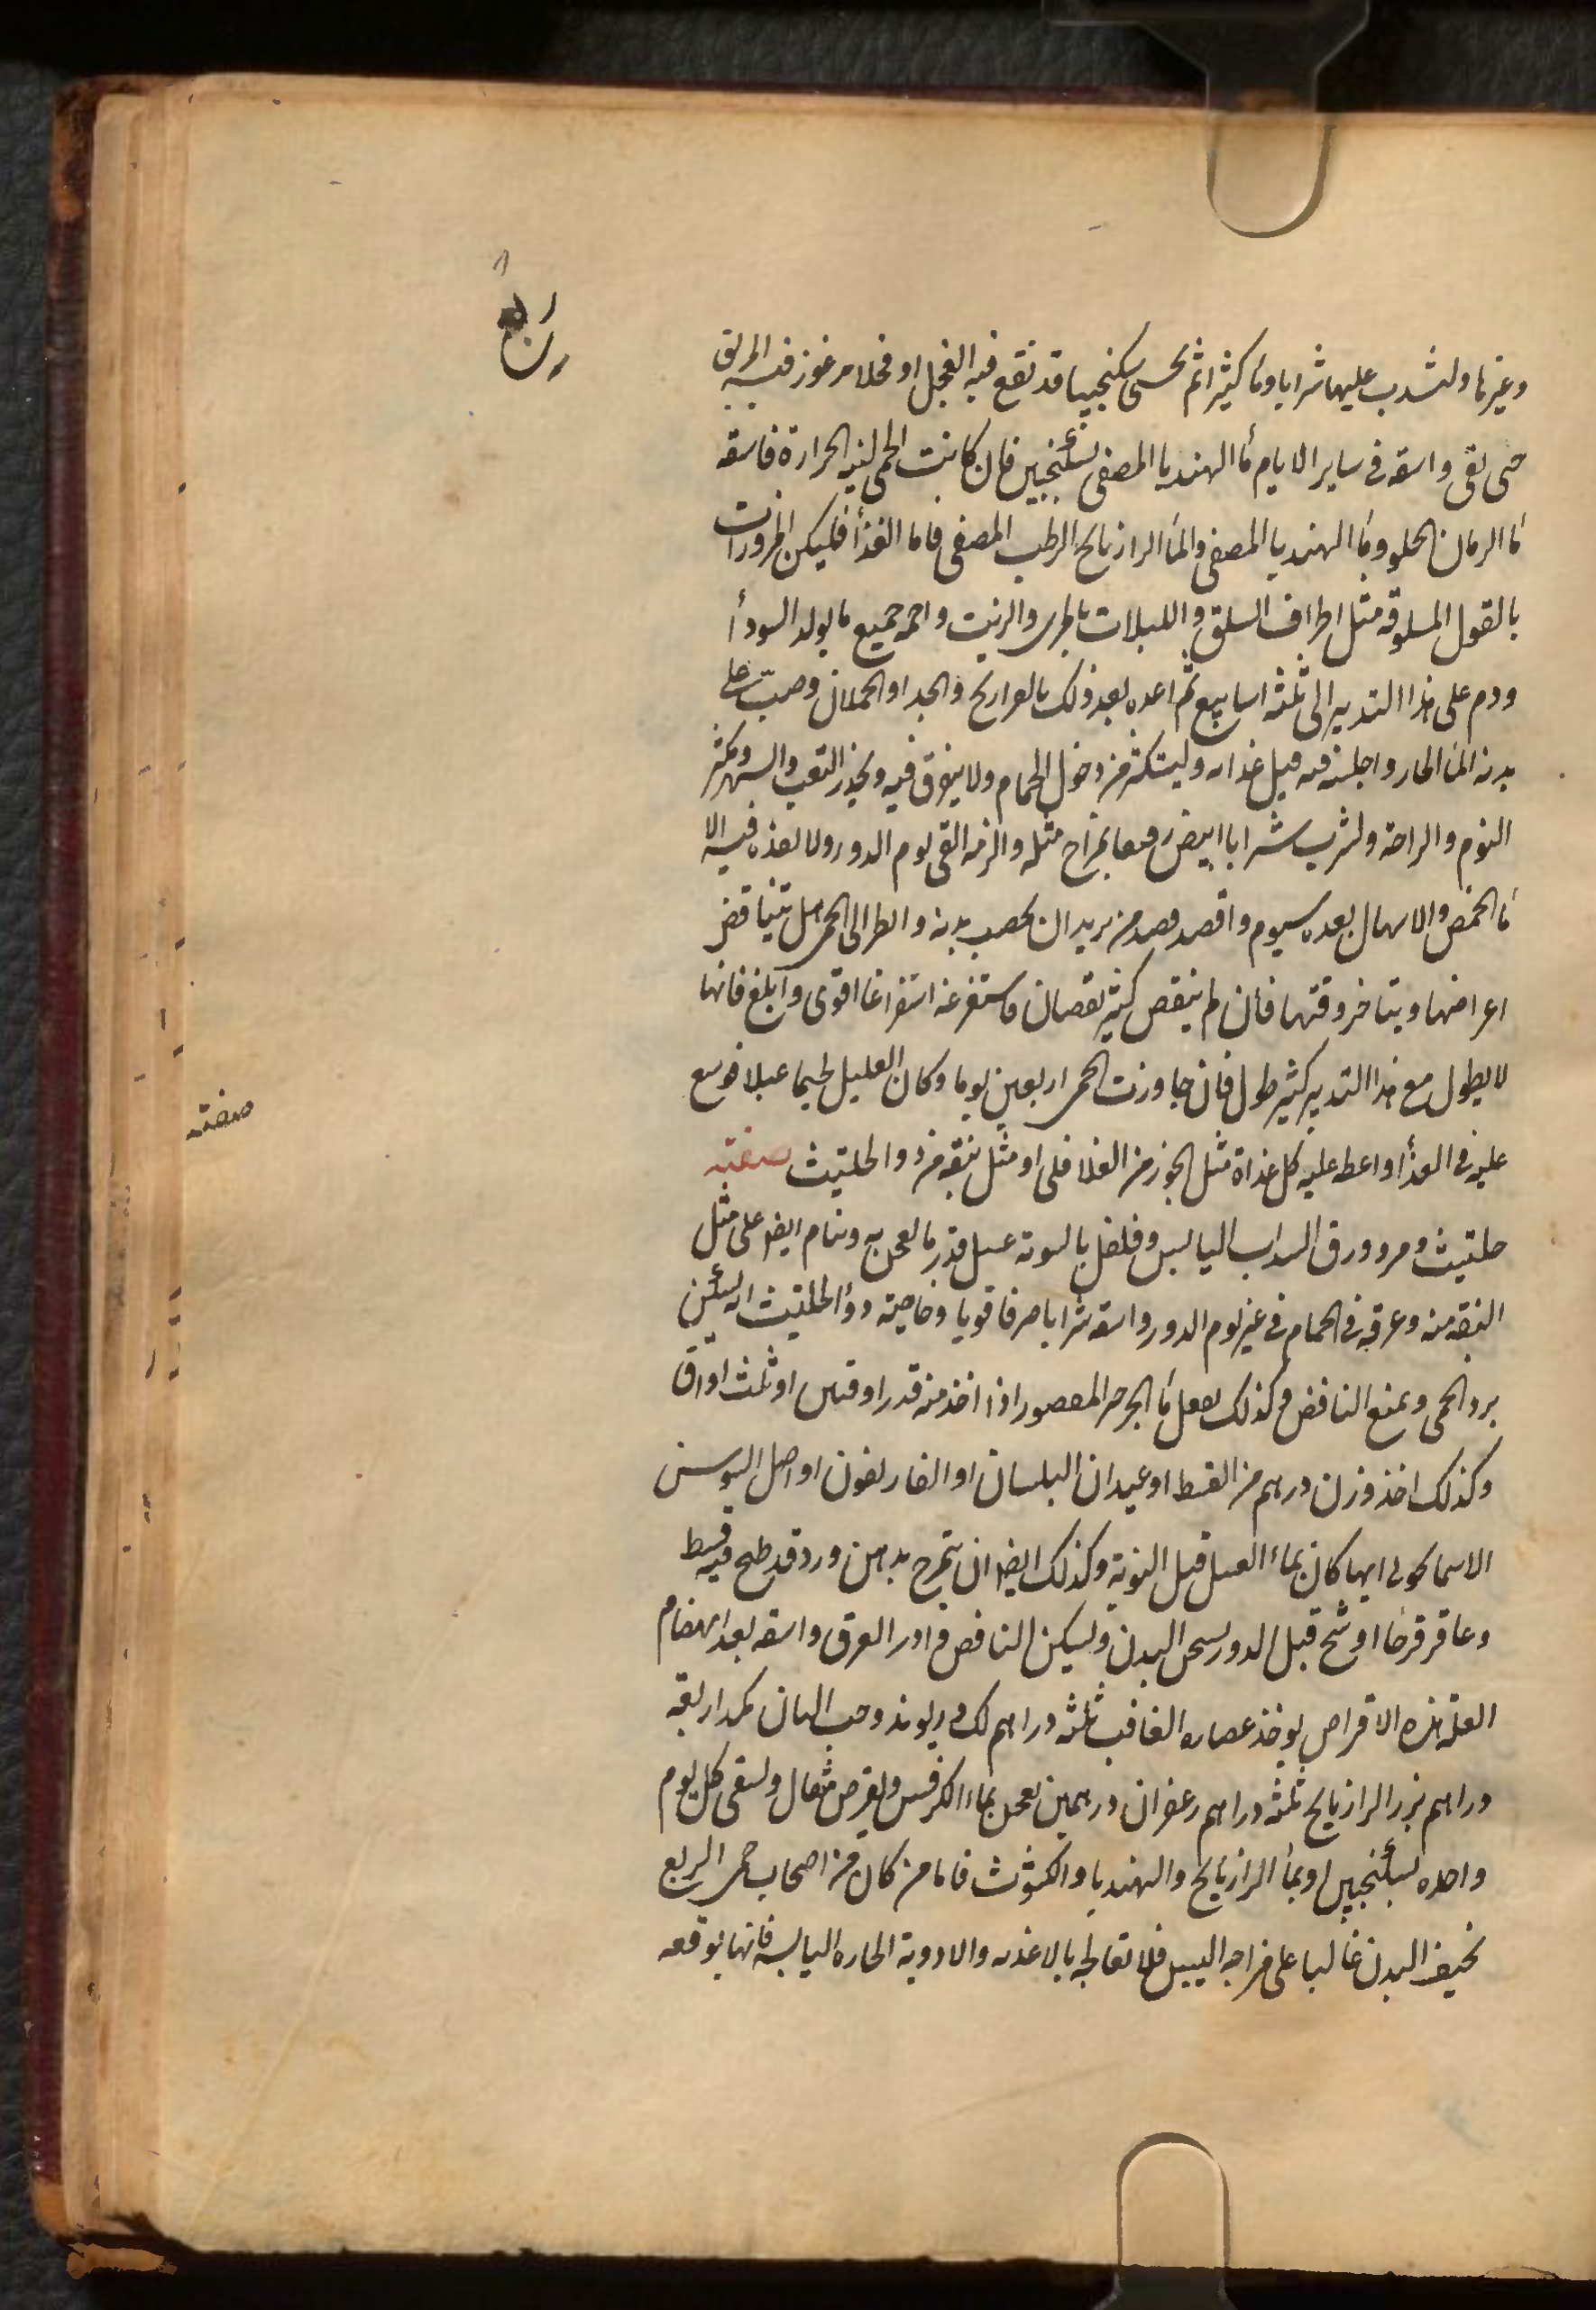 ربع
وغيرها وليشرب عليها شرابا وماء كثيرا ثم يحسى سكنجبينا قد نقع فيه الفجل او فجلا مرغوز فيه الخربق
حتى يقى واسقه فى ساير الايام ماء الهندبا المصفى بسكنجبين فان كانت الحمى لينه الحرارة فاسقه
ماء الرمان الحلو وماء الهندبا المصفى والماء الرازيانج الرطب المصفى فاما الغذاء فليكن المزورات
بالقول المسلوقه مثل اطراف السلق واللبلاب بالمرى والزيت واحمه جميع ما يولد السوداء
ودم على هذا التدبير الى ثلثه اسابيع ثم اغده بعد ذلك بالفراريج والجدا او الحملان وصب على
بدنه الماء الحار واجلسه فيه قبل غذايه وليستكثر من دخول الحمام ولا يعرق فيه ويحذر التعب والسهر ويكثر
النوم والراحة وليشرب شرابا ابيض رقيقا بمزاج مثله والزمه القى يوم الدور ولا تغذه فيه الا
ماء الحمص والاسهال بعده بيوم واقصد قصد من يريد ان يخصب بدنه وانظر الى الحمى هل تتناقص
اعراضها ويتاخر وقتها فان لم ينقص كثير نقصان فاستفرغه استفراغا اقوى وابلغ فانها
لا يطول مع هذا التدبير كثير طول فان جاوزت الحمى اربعين يوما وكان العليل لحيما عبلا فوسع
عليه فى الغذاء واعط عليه كل غداة مثل الجوز من الفلافلى او مثل نبقه من دوا الحلتيث صفته
حلتيث ومر وورق السداب اليابس وفلفل بالسوية عسل قدر ما يعجن به وينام ايضا على مثل
النبقه منه وعرقه فى الحمام فى غير يوم الدور واسقه شرابا صرفا قويا وخاصيته دواء الحلتيث انه يسكن
برد الحمى ويمنع النافض وكذلك يفعل ماء الجرجر المعصور اذا اخذ منه قدر اوقتين او ثلث اواق
وكذلك اخذ وزن درهم من القسط او عيدان البلسان او الغاريقون او اصل السوسن
الاسمانجونى ايها كان بماء العسل قبل النوبة وكذلك ايضا ان يتمرخ بدهن ورد قد طبخ فيه قسط
وعاقرقرحا او شيح قبل الدور يسخن البدن ويسكن النافض وادر العرق واسقه بعد انهضام
العلة هذه الاقراص يوخذ عصاره الغافت ثلثه دراهم لك وريوند وحب البان كمد اربعه
دراهم بزر الرازيانج ثلثه دراهم زعفران درهمين يعجن بماء الكرفس ويقرص مثقال ويسقى كل يوم
واحده بسكنجبين او بماء الرازيانج والهندبا والكشوث فاما من كان من اصحاب حمى الربع
نحيف البدن غالبا على مزاجه اليبس فلا تعالجه بالاغذيه والادوية الحاره اليابسه فانها توقعه
صفته